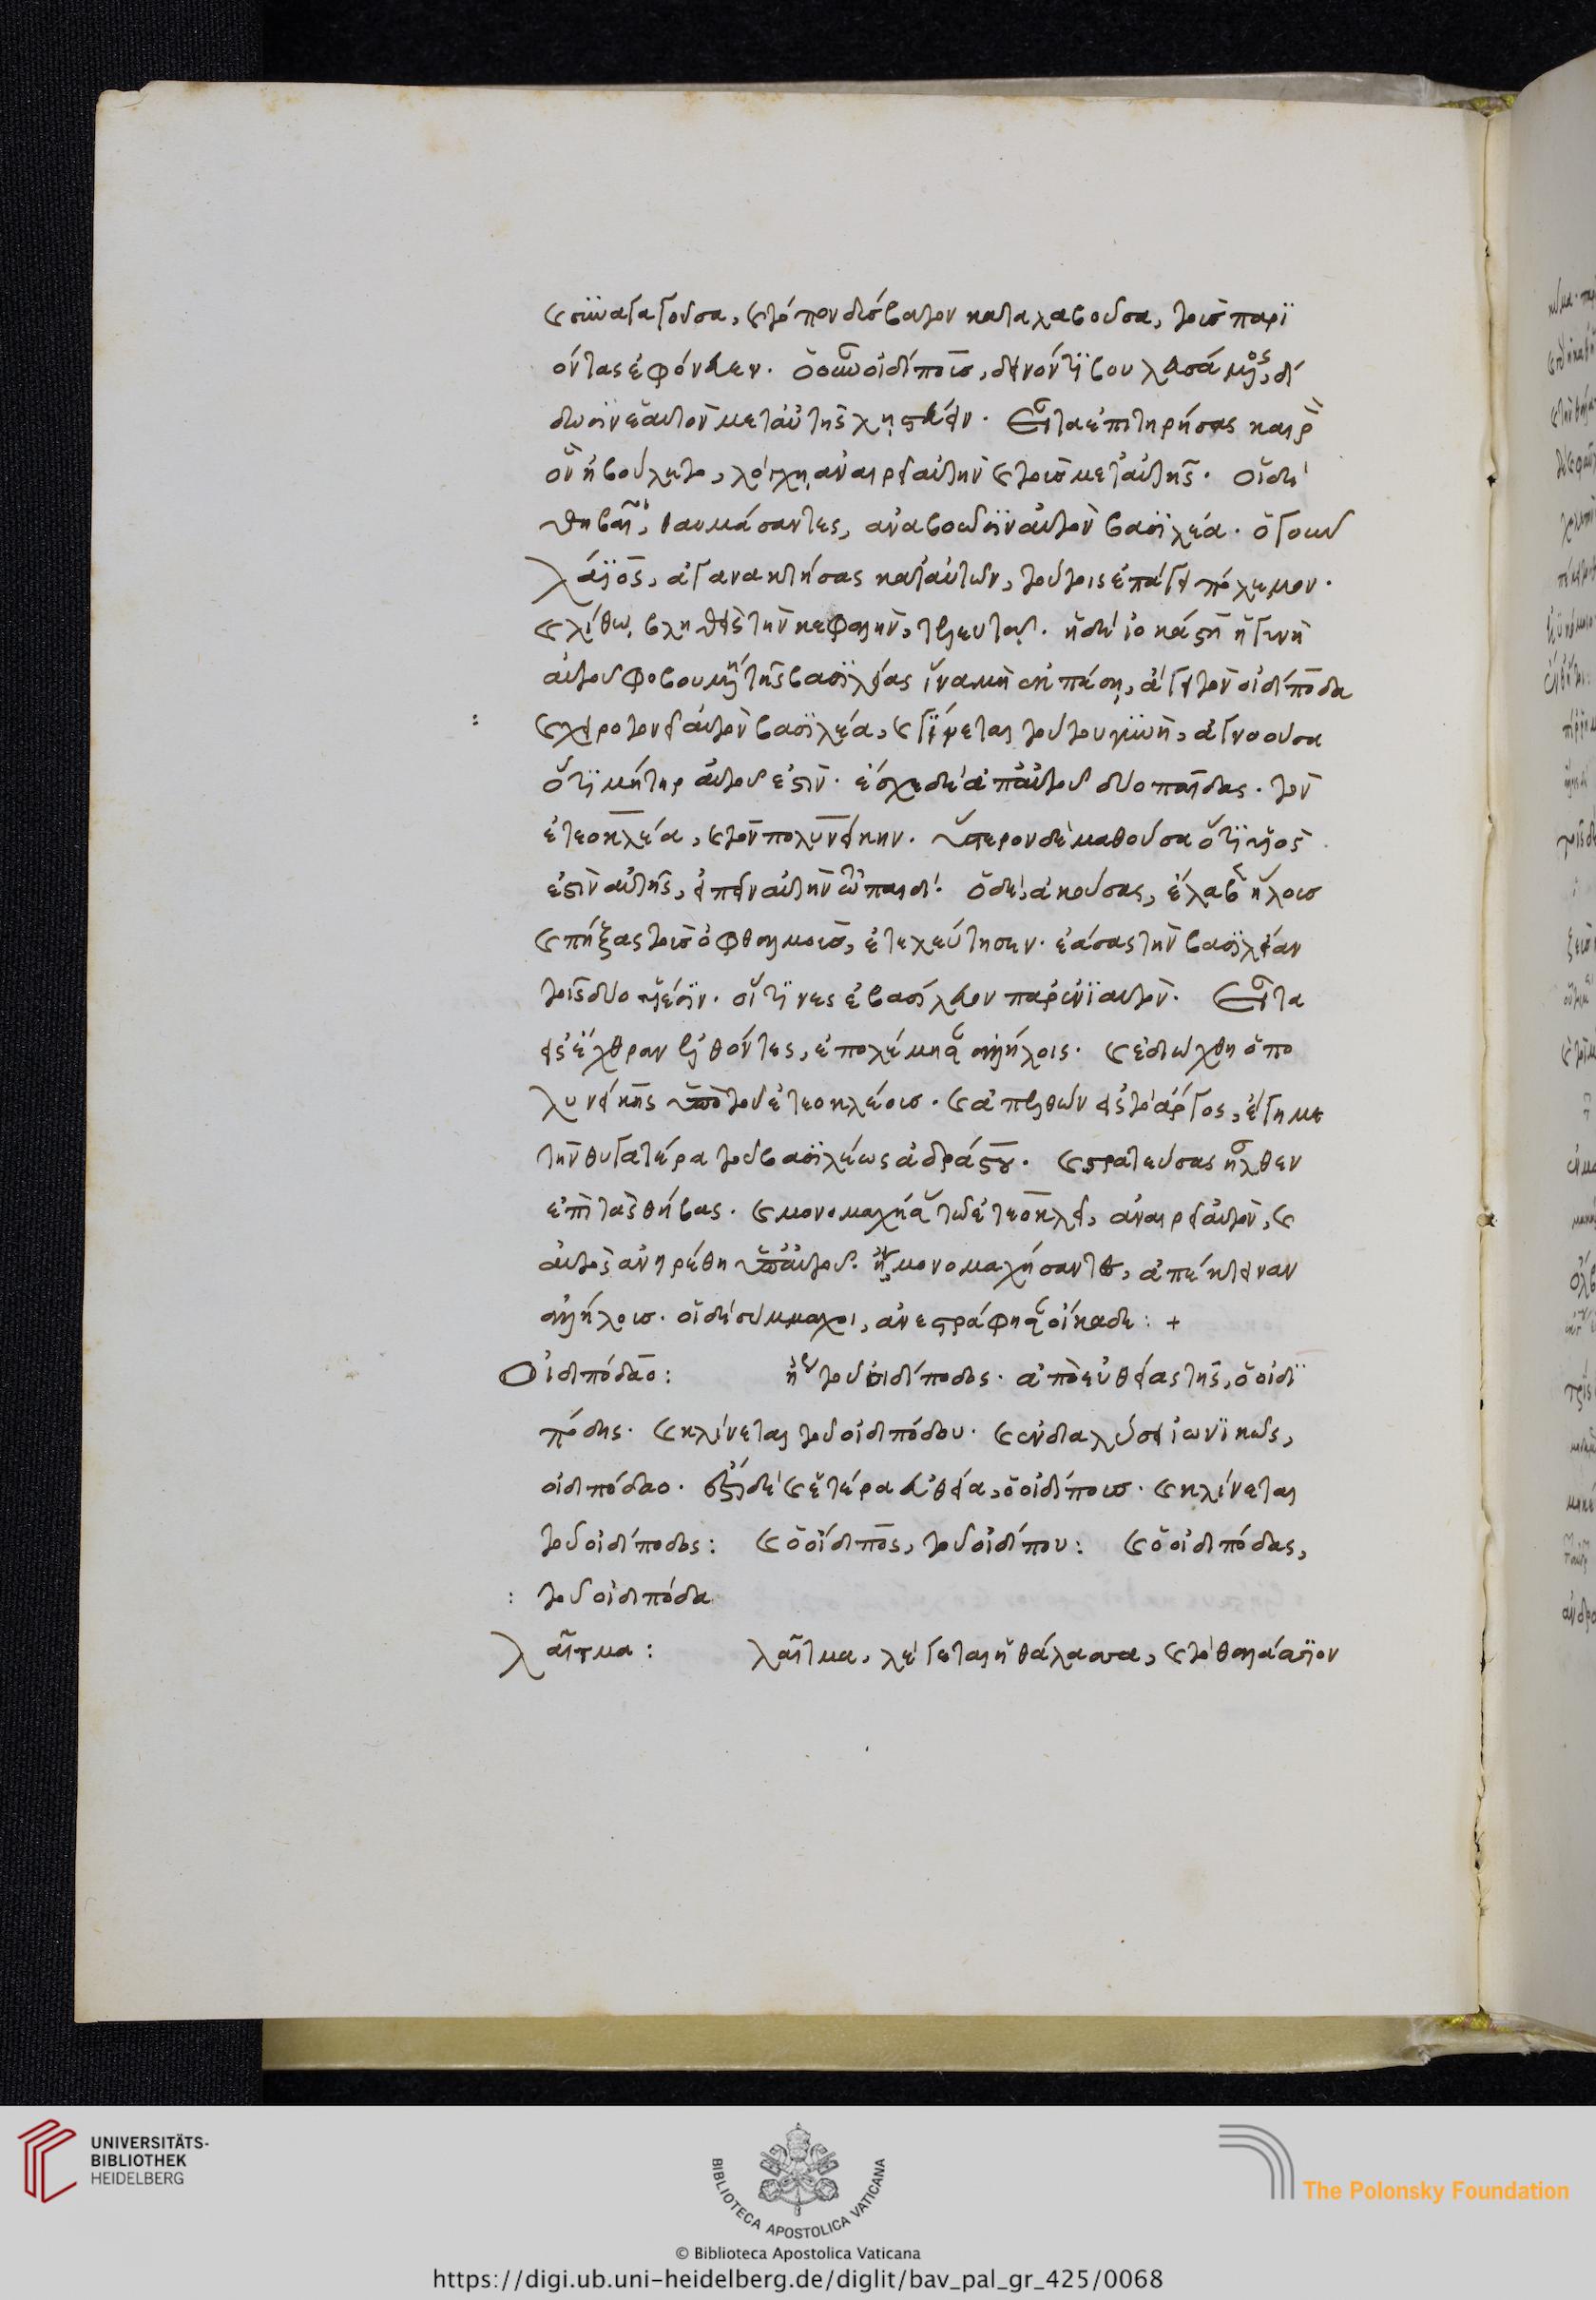 καὶ συναγαγοῦσα, καὶ τόπον δύσβατον καταλαβοῦσα, τοὺς παρϊ
όντας ἐφόνευεν. ὁ οὖν οἰδίπους, δεινόν τϊ βουλευσάμενος, δί
δωσϊν ἑαυτὸν μετ' αὐτῆς ληστεύειν. Εἶτα ἐπιτηρήσας καιρὸν
ὃν ἠβούλετο, λόγχῃ ἀναιρεῖ αὐτὴν καὶ τοὺς μετ' αὐτῆς. οἱ δὲ
θηβαῖοι, θαυμάσαντες, ἀναβοῶσϊν αὐτὸν βασϊλέα. ὁ γοῦν
λάϊος, ἀγανακτήσας κατ' αὐτῶν, τούτοις ἐπάγει πόλεμον.
καὶ λίθῳ βληθεὶς τὴν κεφαλὴν, τελευτᾷ. ἡ δὲ ἰοκάστη ἡ γυνὴ
αὐτοῦ φοβουμένη τῆς βασϊλείας ἵνα μὴ ἐκπέσῃ, ἄγει τὸν οἰδίποδα
καὶ χειροτονεῖ αὐτὸν βασϊλέα, καὶ γίνεται τούτου γϋνὴ, ἀγνοοῦσα
ὅτϊ μήτηρ αὐτοῦ ἐστὶν. ἔσχε δὲ ἀπ' αὐτοῦ δύο παῖδας. τὸν
ἐτεοκλέα, καὶ τὸν πολυνείκην. ὕστερον δὲ μαθοῦσα ὅτϊ υἱὸς
ἐστὶν αὐτῆς, εἰπεῖν αὐτὴν τῶ παιδὶ. ὁ δὲ ἀκούσας, ἔλαβεν ἥλους
καὶ πήξας τοὺς ὀφθαλμοὺς, ἐτελεύτησεν. ἐάσας τὴν βασϊλείαν
τοῖς δύο υἱέσϊν. οἵ τϊνες ἐβασίλευον παρ' ἐνϊαυτὸν. Εἶτα
εἰς ἔχθραν ἐλθόντες, ἐπολέμησαν ἀλλήλοις. καὶ ἐδιώχθη ὁ πο
λυνείκης ὑπὸ τοῦ ἐτεοκλέους. καὶ ἀπελθὼν εἰς τὸ ἄργος, ἔγημε
τὴν θυγατέρα τοῦ βασϊλέως ἀδράστου. καὶ στρατεύσας ἦλθεν
ἐπὶ τὰς θήβας. καὶ μονομαχήσας τῶ ἐτεοκλεῖ, ἀναιρεῖ αὐτὸν, καὶ
αὐτὸς ἀνῃρέθη ὑπ' αὐτοῦ. μονομαχήσαντες, ἀπέκτειναν
ἀλλήλους. οἱ δὲ σύμμαχοι, ἀνεστράφησαν οἴκαδε: +
Οἰδιπόδαο: ἤγουν τοῦ οἰδίποδος. ἀπὸ εὐθείας τῆς, ὁ οἰδϊ
πόδης. καὶ κλίνεται τοῦ οἰδιπόδου. καὶ ἐν διαλύσει ἰωνϊκῶς,
οἰδιπόδαο. ἔστι δὲ καὶ ἑτέρα εὐθεῖα, ὁ οἰδίπους. καὶ κλίνεται
τοῦ οἰδίποδος: καὶ ὁ οἴδιπος, τοῦ οἰδίπου: καὶ ὁ οἰδιπόδας,
: τοῦ οἰδιπόδα
λαῖτμα: λαῖτμα, λέγεται ἡ θάλασσα, καὶ τὸ θαλάσσϊον
UNIVERSITÄTS-
BIBLIOTHEK
HEIDELBERG
BIBLIOTECA APOSTOLICA VATICANA
The Polonsky Foundation
© Biblioteca Apostolica Vaticana
https://digi.ub.uni-heidelberg.de/diglit/bav_pal_gr_425/0068